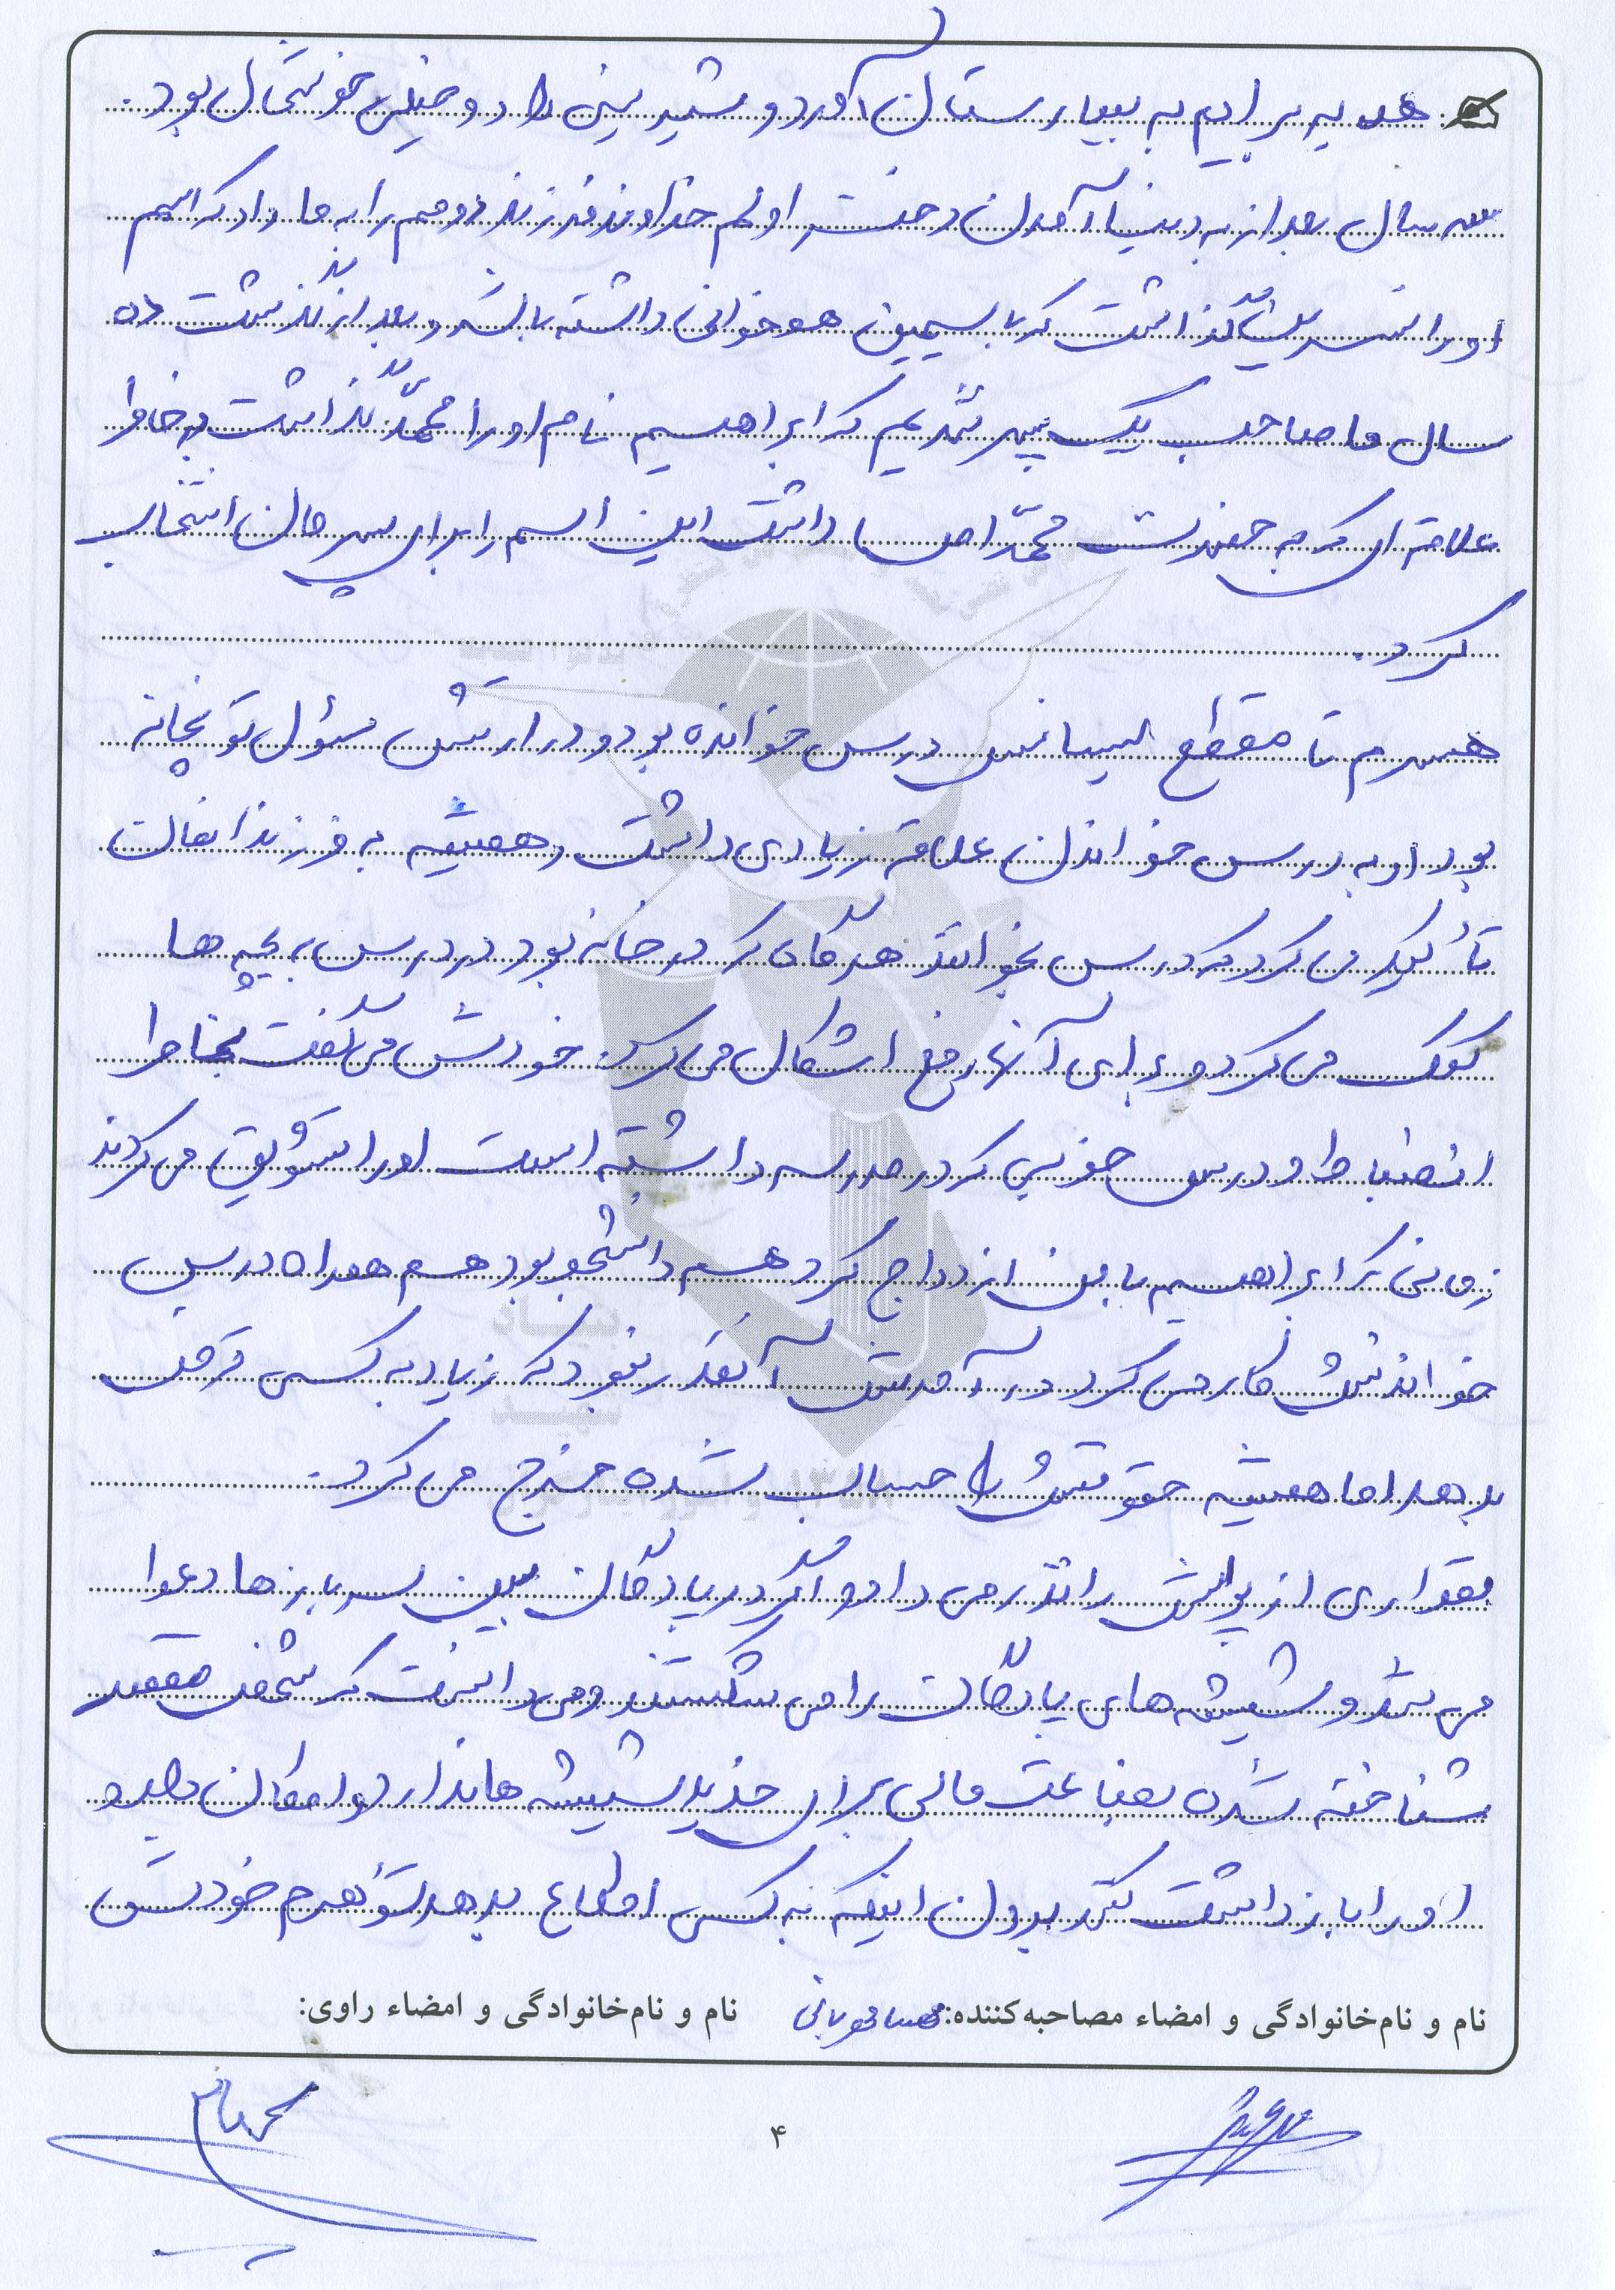 هدیه برایم به بیمارستان آورد و شیرینی داد و خیلی خوشحال بود.
سه سال بعد از به دنیا آمدن دختر اولم خداوند فرزند دومم را به ما داد که اسم
او را نسرین گذاشت که با سیمین هم خوانی داشته باشد و بعد از گذشت ده
سال ما صاحب یک پسر شدیم که ابراهیم نام او را محمّد گذاشت به خاطر
علاقه ای که به حضرت محمّد (ص) داشت این اسم را برای پسرمان انتخاب
کرد.
همسرم تا مقطع لیسانس درس خوانده بود و در ارتش مسؤل توپخانه
بود او به درس خواندن علاقه زیادی داشت و همیشه به فرزندانمان
تأکید می کرد که درس بخوانند هرگاه که در خانه بود در درس به بچه ها
کمک می کرد و برای آنها رفع اشکال می کرد. خودش می گفت بخاطر
انضباط و درس خوبی که در مدرسه داشته است او را تشویق می کردند
زمانی که ابراهیم با من ازدواج کرد هم دانشجو بود هم همراه درس
خواندنش کار می کرد درآمدش آنقدر نبود که زیاد به کسی قرض
بدهد اما همیشه حقوقش را حساب شده خرج می کرد.
مقداری از پولش را نذر می داد و اگر در پادگان بین سربازها دعوا
می شد و شیشه های پادگان را می شکستند و می دانست که شخص مقصر
شناخته شده بضاعت مالی برای خرید شیشه ها ندارد و امکان دارد
او را بازداشت کنند بدون اینکه به کسی اطلاع بدهد تو هم خودش
نام و نام‌خانوادگی و امضاء مصاحبه‌کننده: نام و نام‌خانوادگی و امضاء راوی:
۴